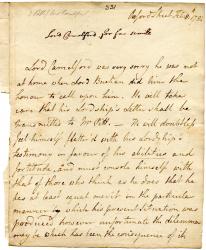 331
Oxford Street Feb
Lord Camelford was very sorry he was not
at home when Lord Buchan did him the
honour to call upon him. He will take
care that his Lordship's letter shall be
transmitted to Mr. Pitt. He will doubtless
feel himself flatter'd with his Lordship's
testimony in favour of his abilities and
fortitude, and must console himself with
that of those who think as he does that he
has at least equal merit in the particular
manner in which his present situation was
produced however unfortunate the dilemma
may be which has been the consequence of it.